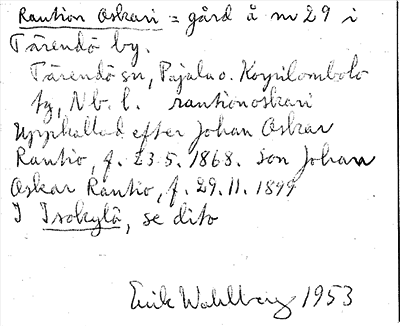 Rantion Oskari = gård å nr 29 i
Tärendö by.
Tärendö sn, Pajala o. Korpilombolo
tg, Nb. l. rantionoskari
Upphallad efter Johan Oskar
Rantio, f. 23.5.1868. Son Johan
Oskar Rantio, f. 29.11.1899
I Isokylä, se dito
Erik Wahlberg 1953